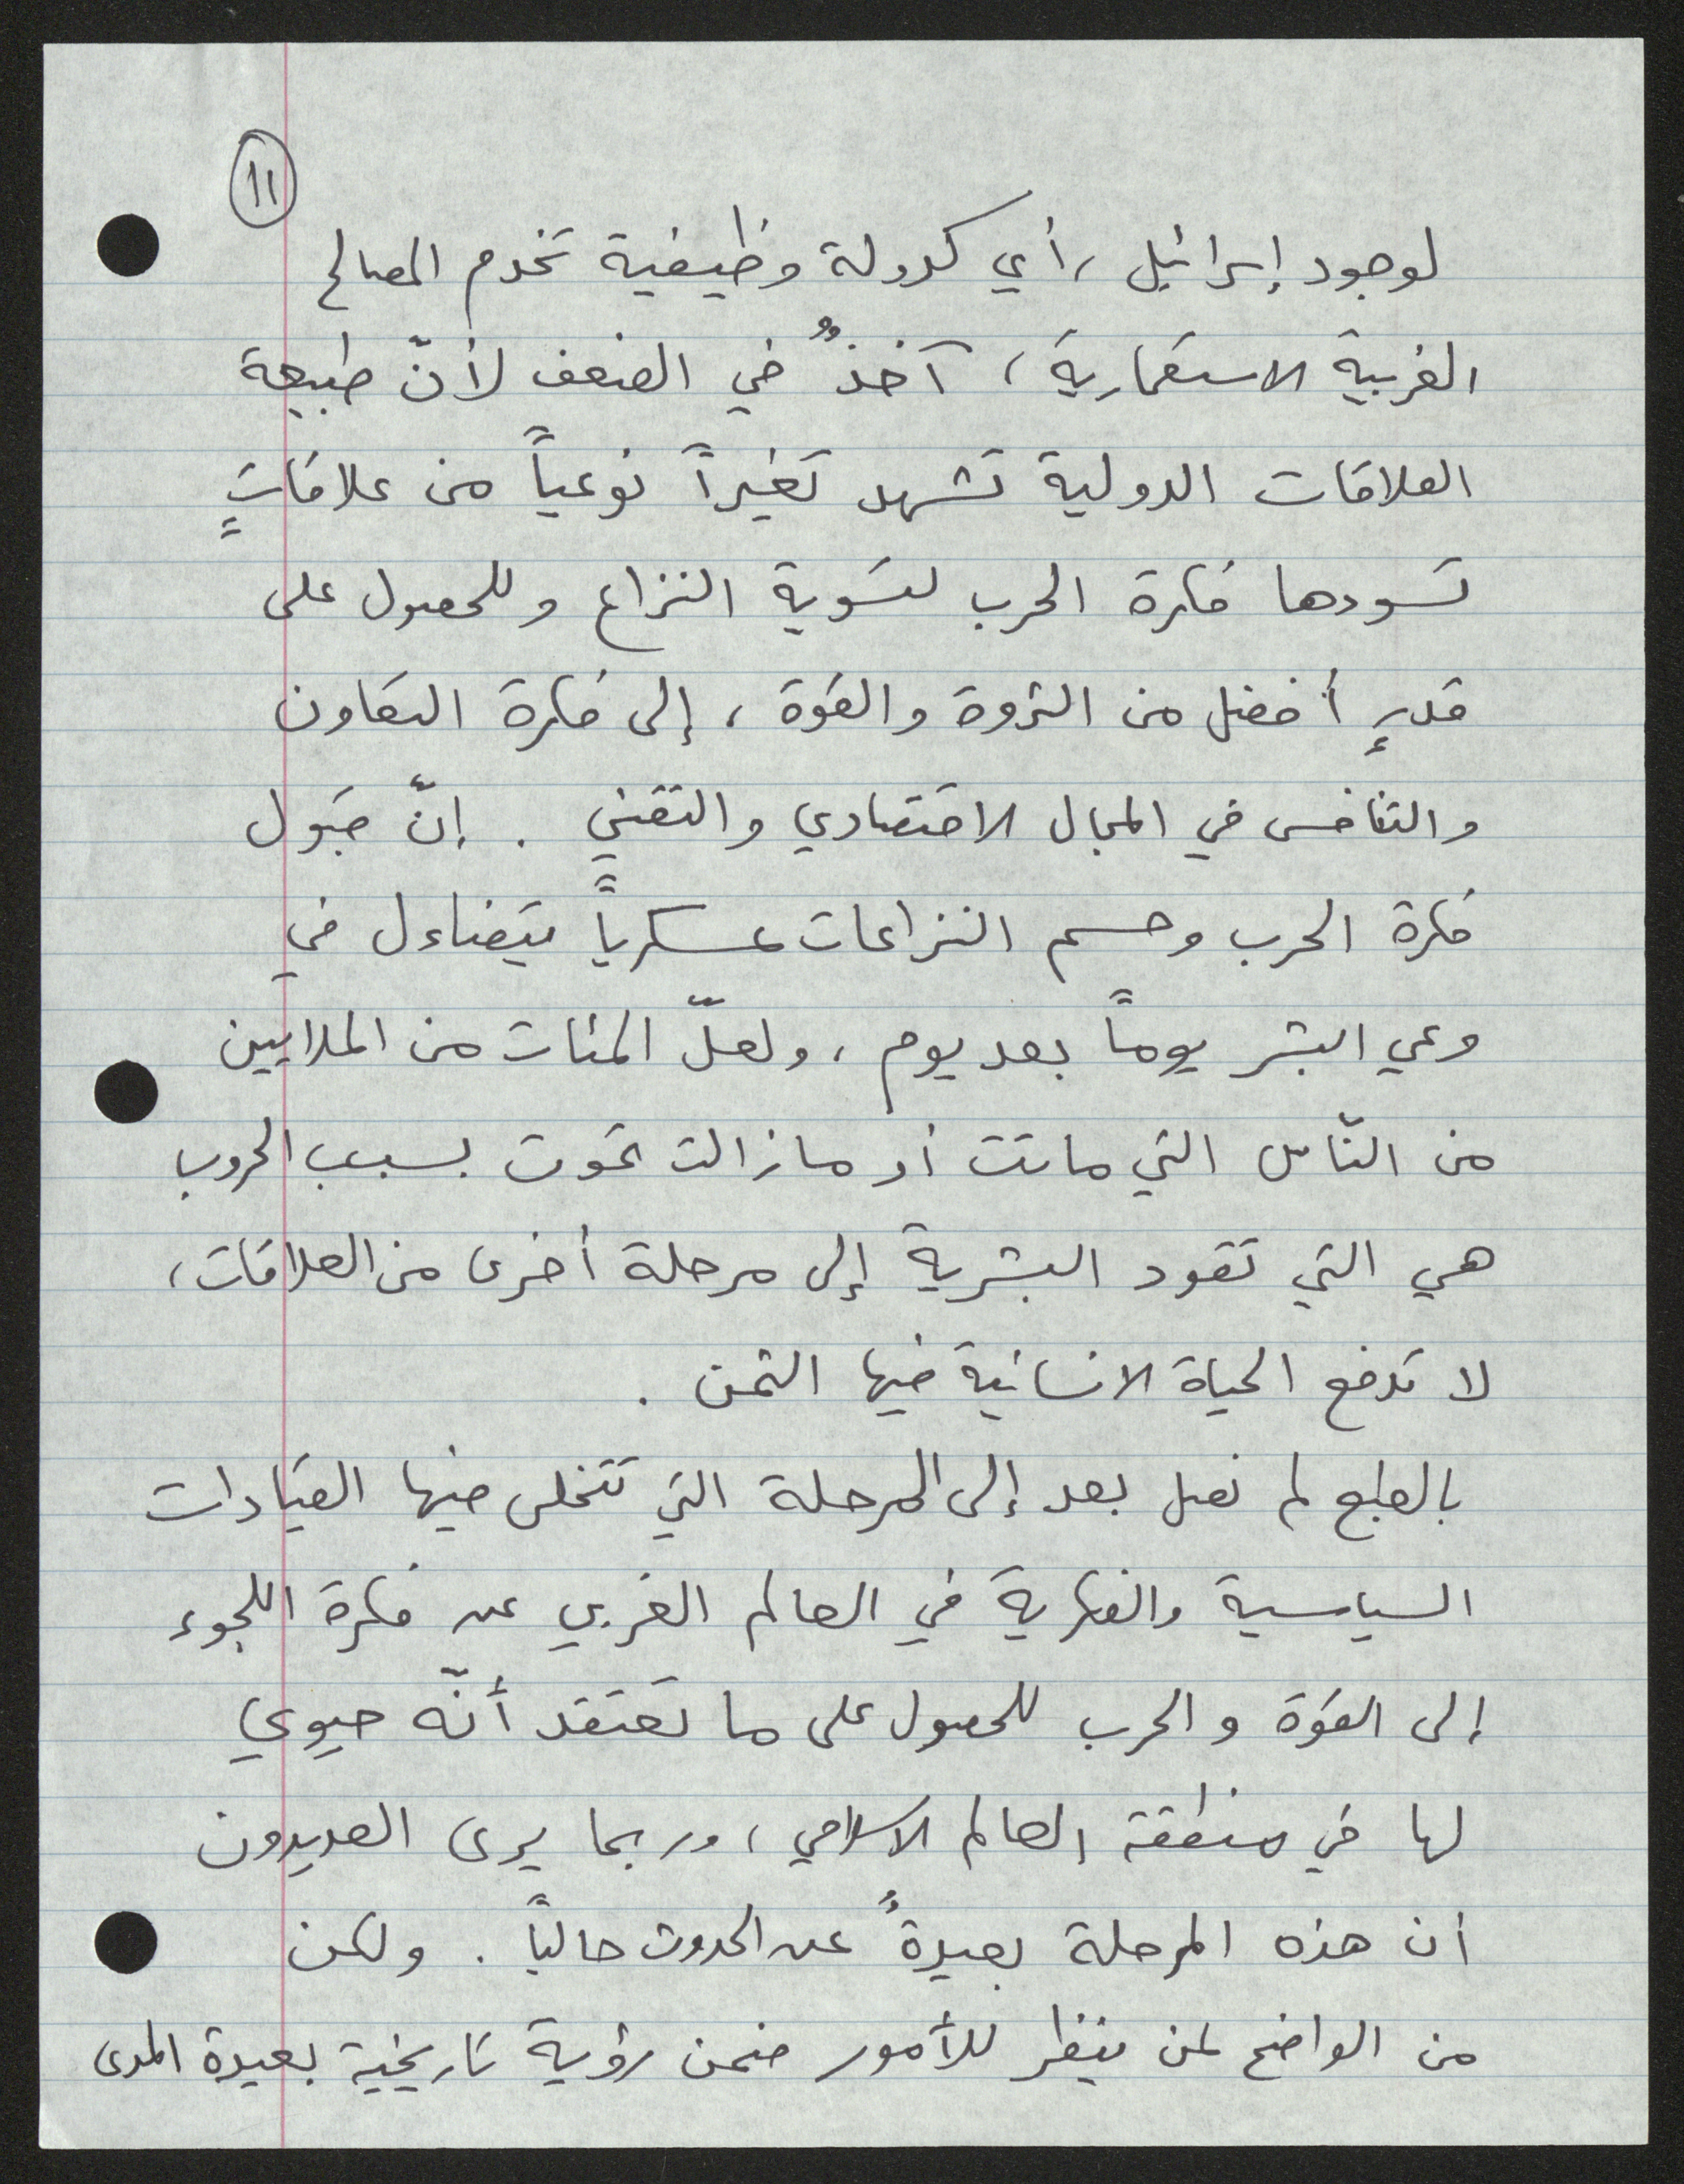 ١١
لوجود إسرائيل، أي كدولة وظيفية تخدم المصالح
الغربية الاستعمارية، آخذٌ في الضعف لأنّ طبيعة
العلاقات الدولية تشهد تغيراً نوعياً من علاقاتٍ
تسودها فكرة الحرب لتسوية النزاع وللحصول على
قدرٍ أفضل من الثروة والقوة، إلى فكرة التعاون
والتنافس في المجال الاقتصادي والتقني. إنّ قبول
فكرة الحرب وحسم النزاعات عسكرياً يتضاءل في
وعي البشر يوماً بعد يوم، ولعلّ المئات من الملايين
من النّاس التي ماتت أو مازالت تموت بسبب الحروب
هي التي تقود البشرية إلى مرحلة أخرى من العلاقات،
لا تدفع الحياة الانسانية فيها الثمن.
بالطبع لم نصل بعد إلى المرحلة التي تتخلى فيها القيادات
السياسية والفكرية في العالم الغربي عن فكرة اللجوء
إلى القوة والحرب للحصول على ما تعتقد أنّه حيوي
لها في منطقة العالم الاسلامي، وربما يرى العديدون
أن هذه المرحلة بعيدةٌ عن الحدوث حالياً. ولكن
من الواضح لمن ينظر للأمور ضمن رؤية تاريخية بعيدة المدى